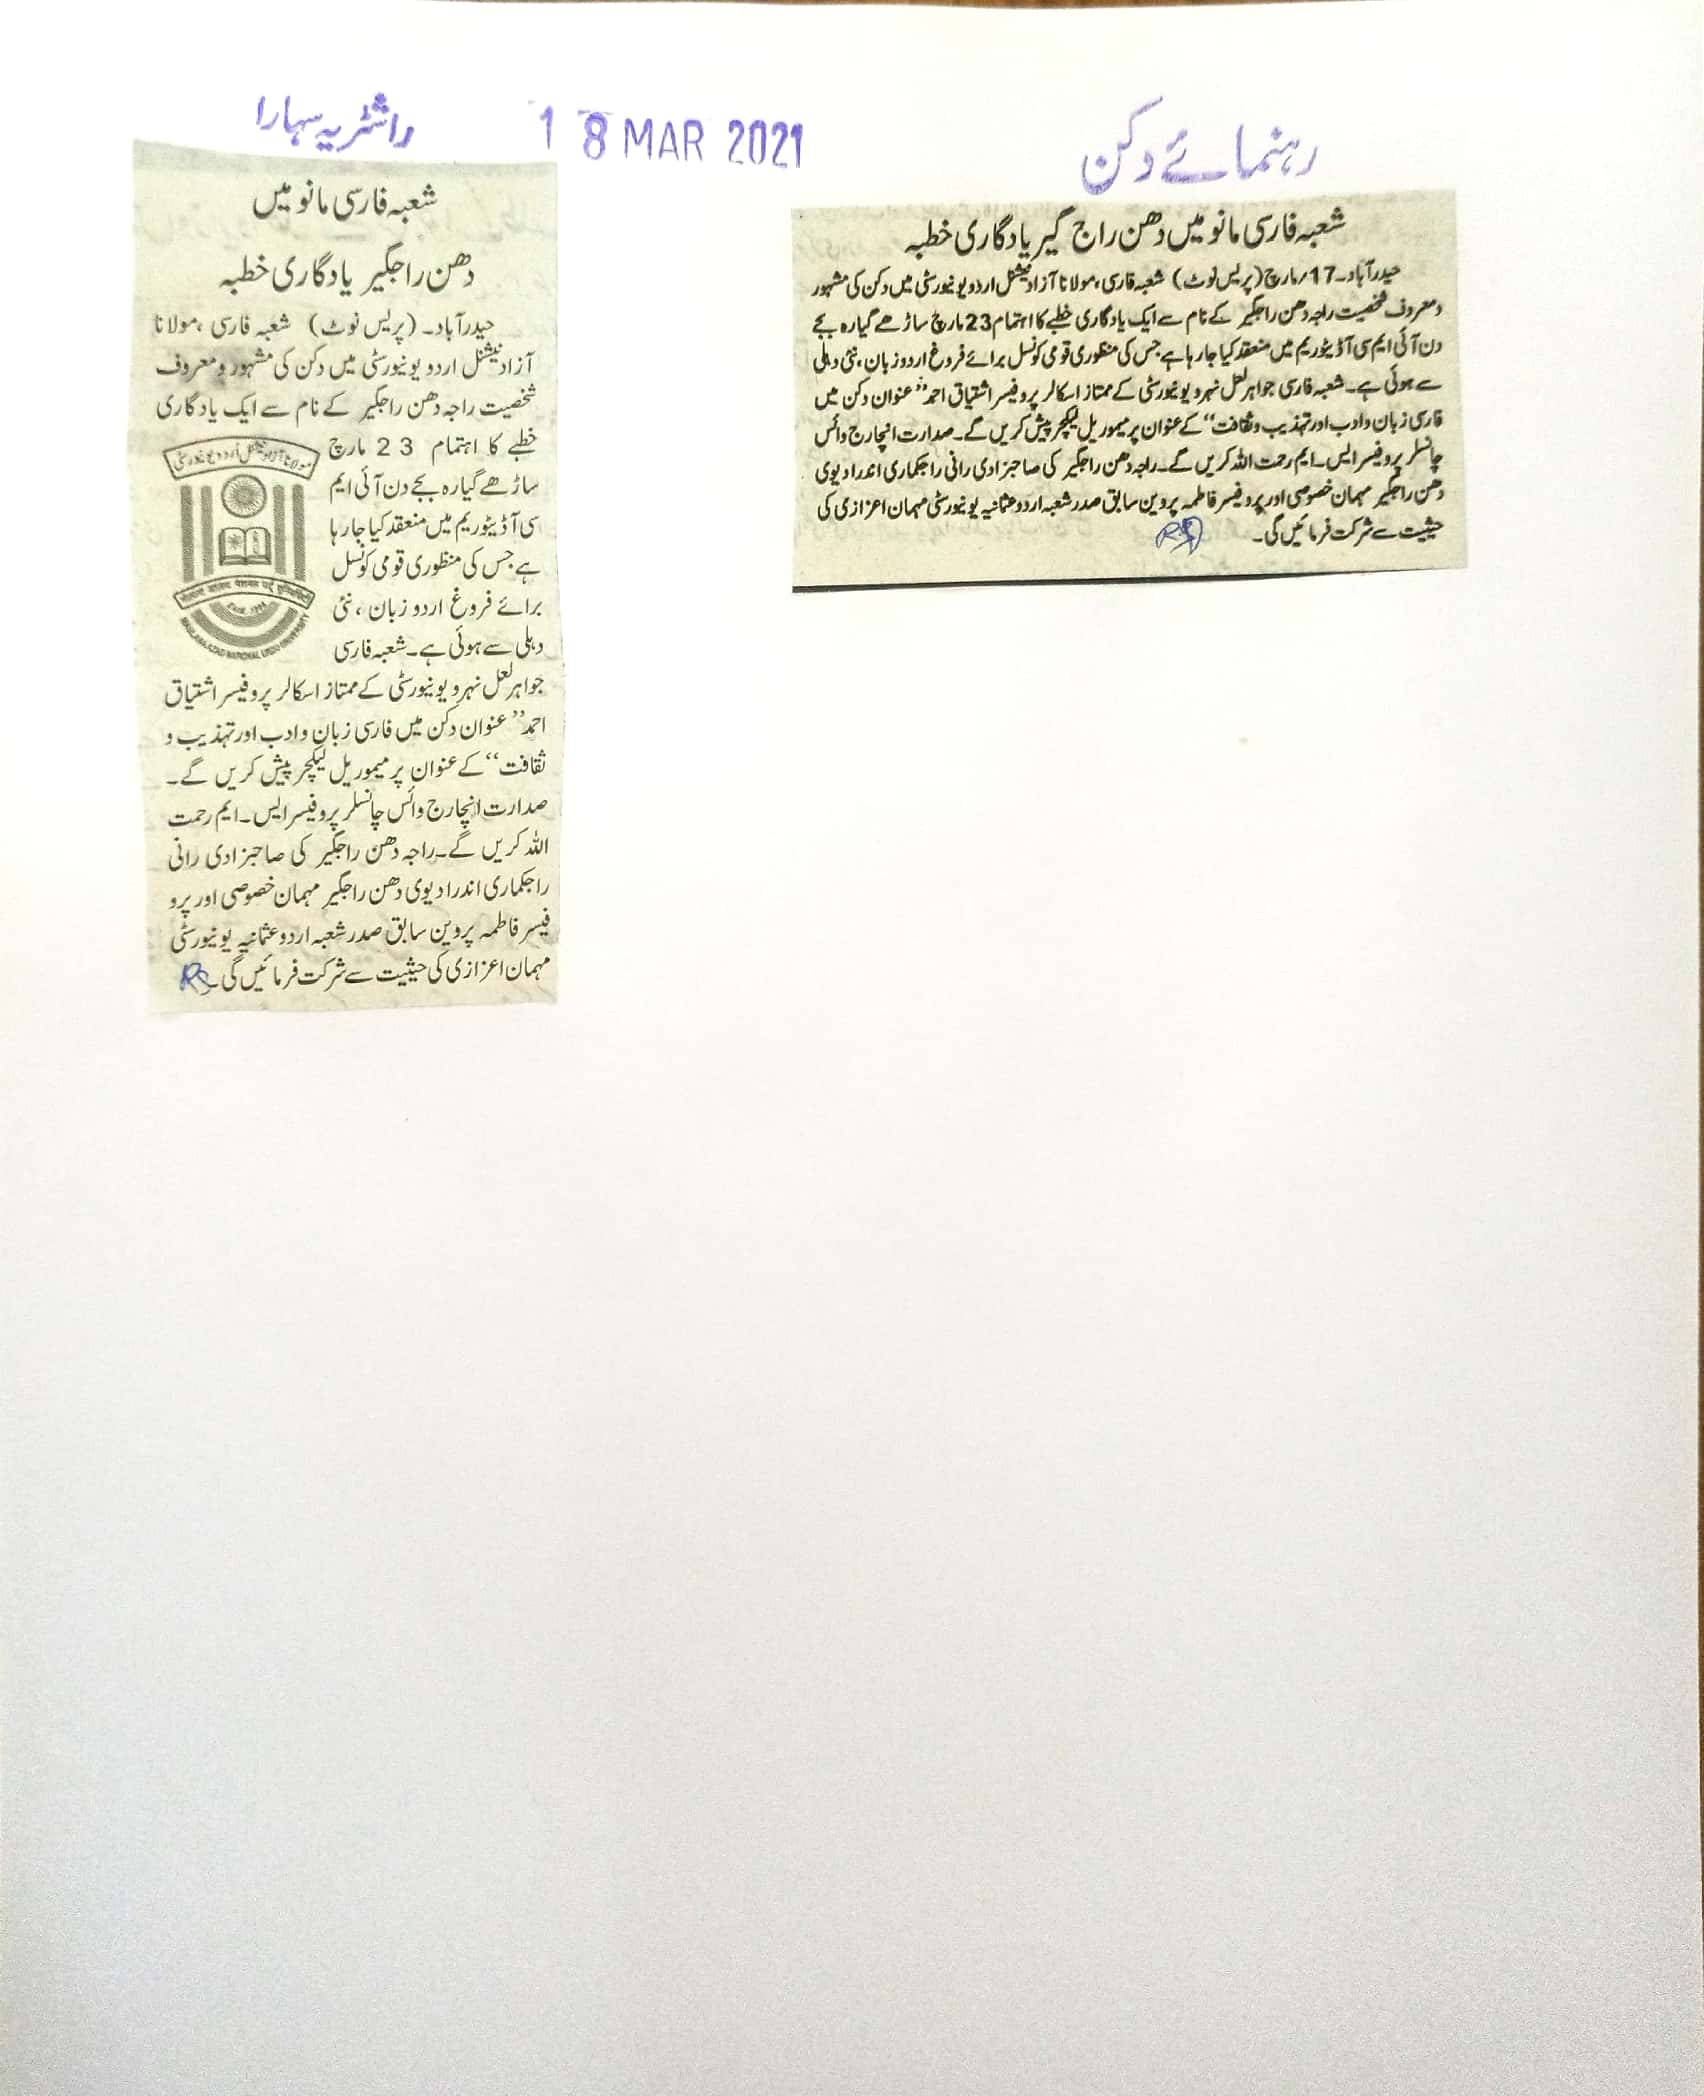 راشٹریہ سہارا
18 MAR 2021
رہنمائے دکن
شعبہ فارسی مانو میں
دھن راجگیر یادگاری خطبہ
حیدرآباد۔ (پریس نوٹ) شعبہ فارسی ،مولانا
آزاد نیشنل اردو یونیورسٹی میں دکن کی مشہور و معروف
شخصیت راجہ دھن راجگیر کے نام سے ایک یادگاری
خطبے کا اہتمام 23 مارچ
ساڑھے گیارہ بجے دن آئی ایم
سی آڈیٹوریم میں منعقد کیا جا رہا
ہے جس کی منظوری قومی کونسل
برائے فروغ اردو زبان ،نئی
دہلی سے ہوئی ہے۔ شعبہ فارسی
جواہر لعل نہرو یونیورسٹی کے ممتاز اسکالر پروفیسر اشتیاق
احمد ”عنوان دکن میں فارسی زبان و ادب اور تہذیب و
ثقافت“ کے عنوان پر میموریل لیکچر پیش کریں گے۔
صدارت انچارج وائس چانسلر پروفیسر ایس۔ ایم رحمت
اللہ کریں گے۔ راجہ دھن راجگیر کی صاحبزادی رانی
راجکماری اندرا دیوی دھن راجگیر مہمان خصوصی اور پرو
فیسر فاطمہ پروین سابق صدر شعبہ اردو عثمانیہ یونیورسٹی
مہمان اعزازی کی حیثیت سے شرکت فرمائیں گی۔ RS
مولانا آزاد نیشنل اردو یونیورسٹی
मौलाना आज़ाद नेशनल उर्दू यूनिवर्सिटी
MAULANA AZAD NATIONAL URDU UNIVERSITY
شعبہ فارسی مانو میں دھن راج گیر یادگاری خطبہ
حیدرآباد۔17/مارچ (پریس نوٹ) شعبہ فارسی ،مولانا آزاد نیشنل اردو یونیورسٹی میں دکن کی مشہور
و معروف شخصیت راجہ دھن راجگیر کے نام سے ایک یادگاری خطبے کا اہتمام 23 مارچ ساڑھے گیارہ بجے
دن آئی ایم سی آڈیٹوریم میں منعقد کیا جا رہا ہے جس کی منظوری قومی کونسل برائے فروغ اردو زبان ،نئی دہلی
سے ہوئی ہے۔ شعبہ فارسی جواہر لعل نہرو یونیورسٹی کے ممتاز اسکالر پروفیسر اشتیاق احمد ”عنوان دکن میں
فارسی زبان و ادب اور تہذیب و ثقافت“ کے عنوان پر میموریل لیکچر پیش کریں گے۔ صدارت انچارج وائس
چانسلر پروفیسر ایس۔ ایم رحمت اللہ کریں گے۔ راجہ دھن راجگیر کی صاحبزادی رانی راجکماری اندرا دیوی
دھن راجگیر مہمان خصوصی اور پروفیسر فاطمہ پروین سابق صدر شعبہ اردو عثمانیہ یونیورسٹی مہمان اعزازی کی
حیثیت سے شرکت فرمائیں گی۔